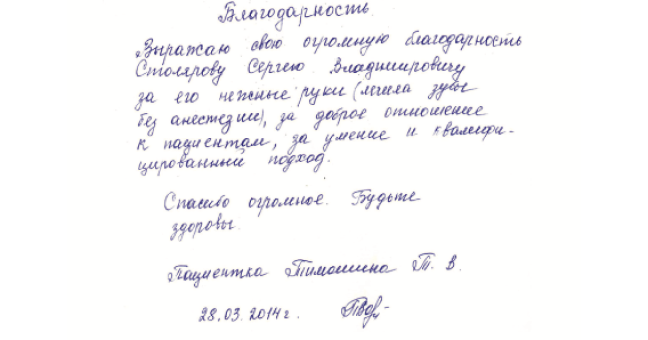 Благодарность
Выражаю свою огромную благодарность
Столярову Сергею Владимировичу
за его нежные руки (лечила зубы
без анестезии), за доброе отношение
к пациентам, за умение и квалифи-
цированный подход.
Спасибо огромное. Будьте
здоровы.
Пациентка Тимошина Т. В.
28.03.2014г.